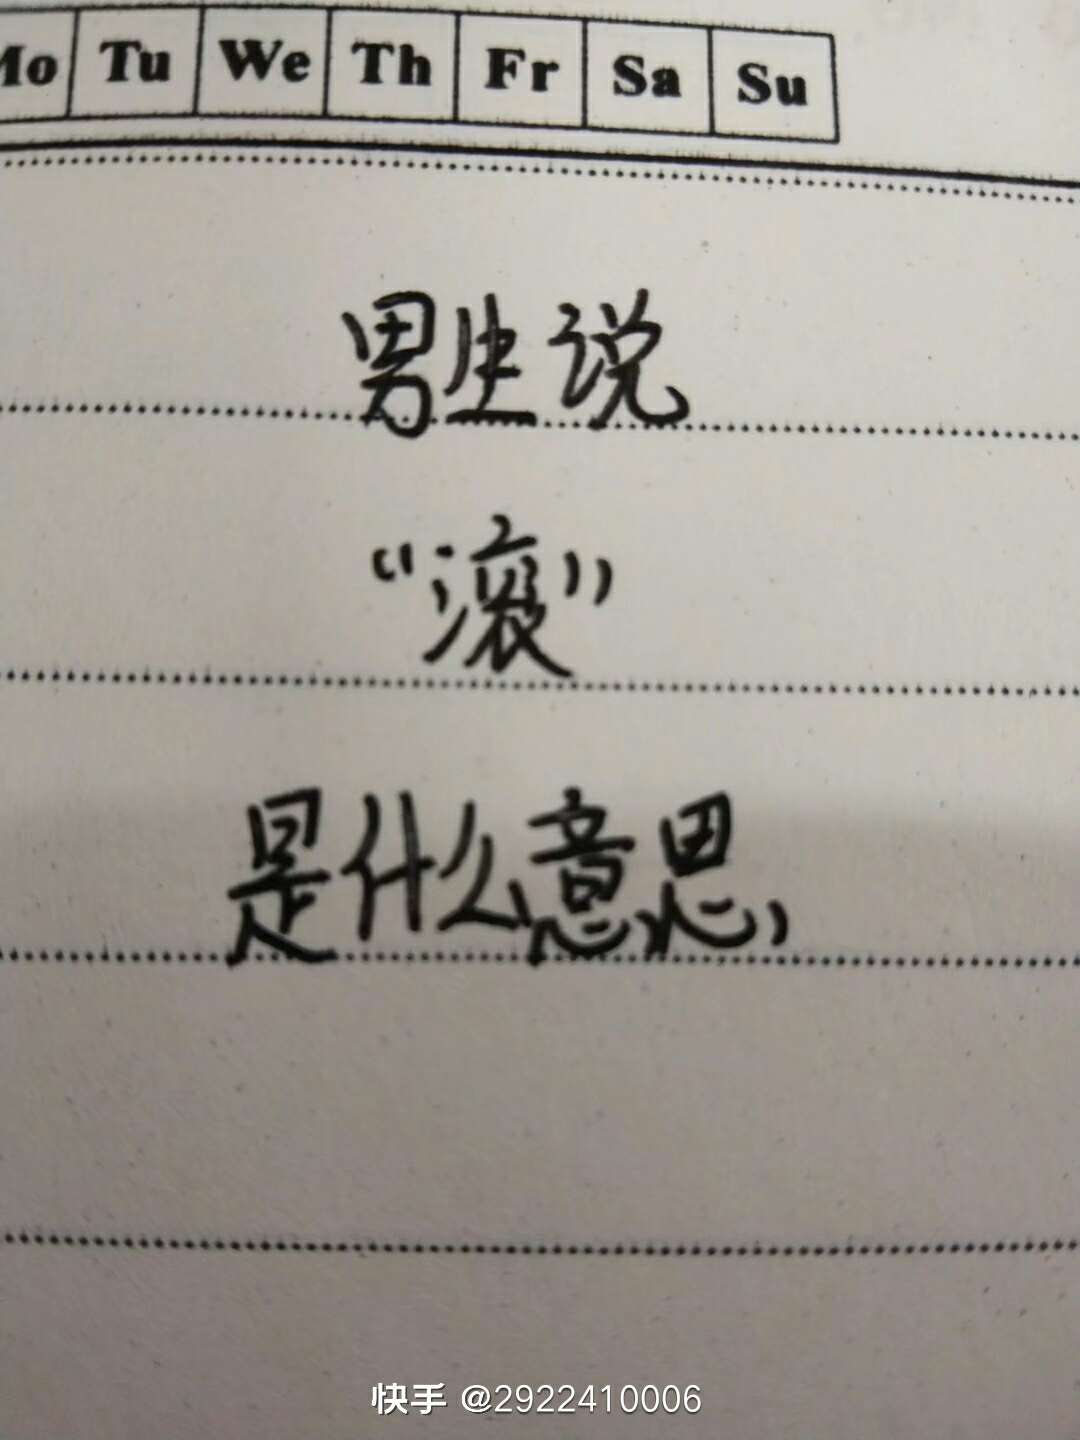 Mo Tu We Th Fr Sa Su
男生说
“滚”
是什么意思
快手 @2922410006